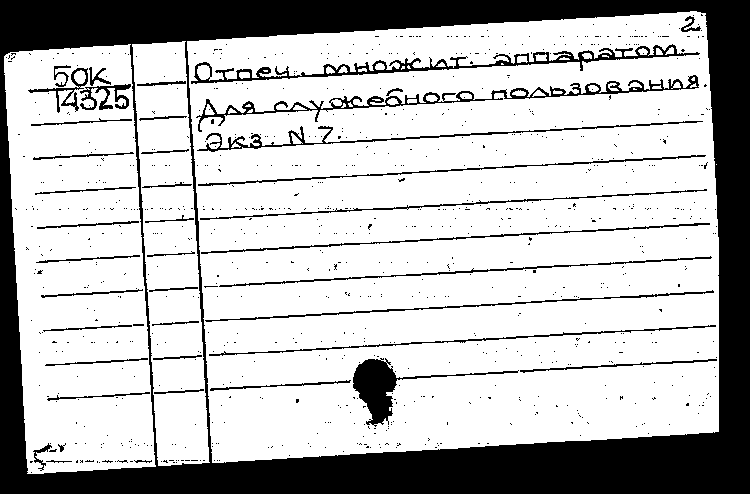 2
50К Отпеч. множит. аппаратом.
14325 Для служебного пользования.
Экз. N 7.